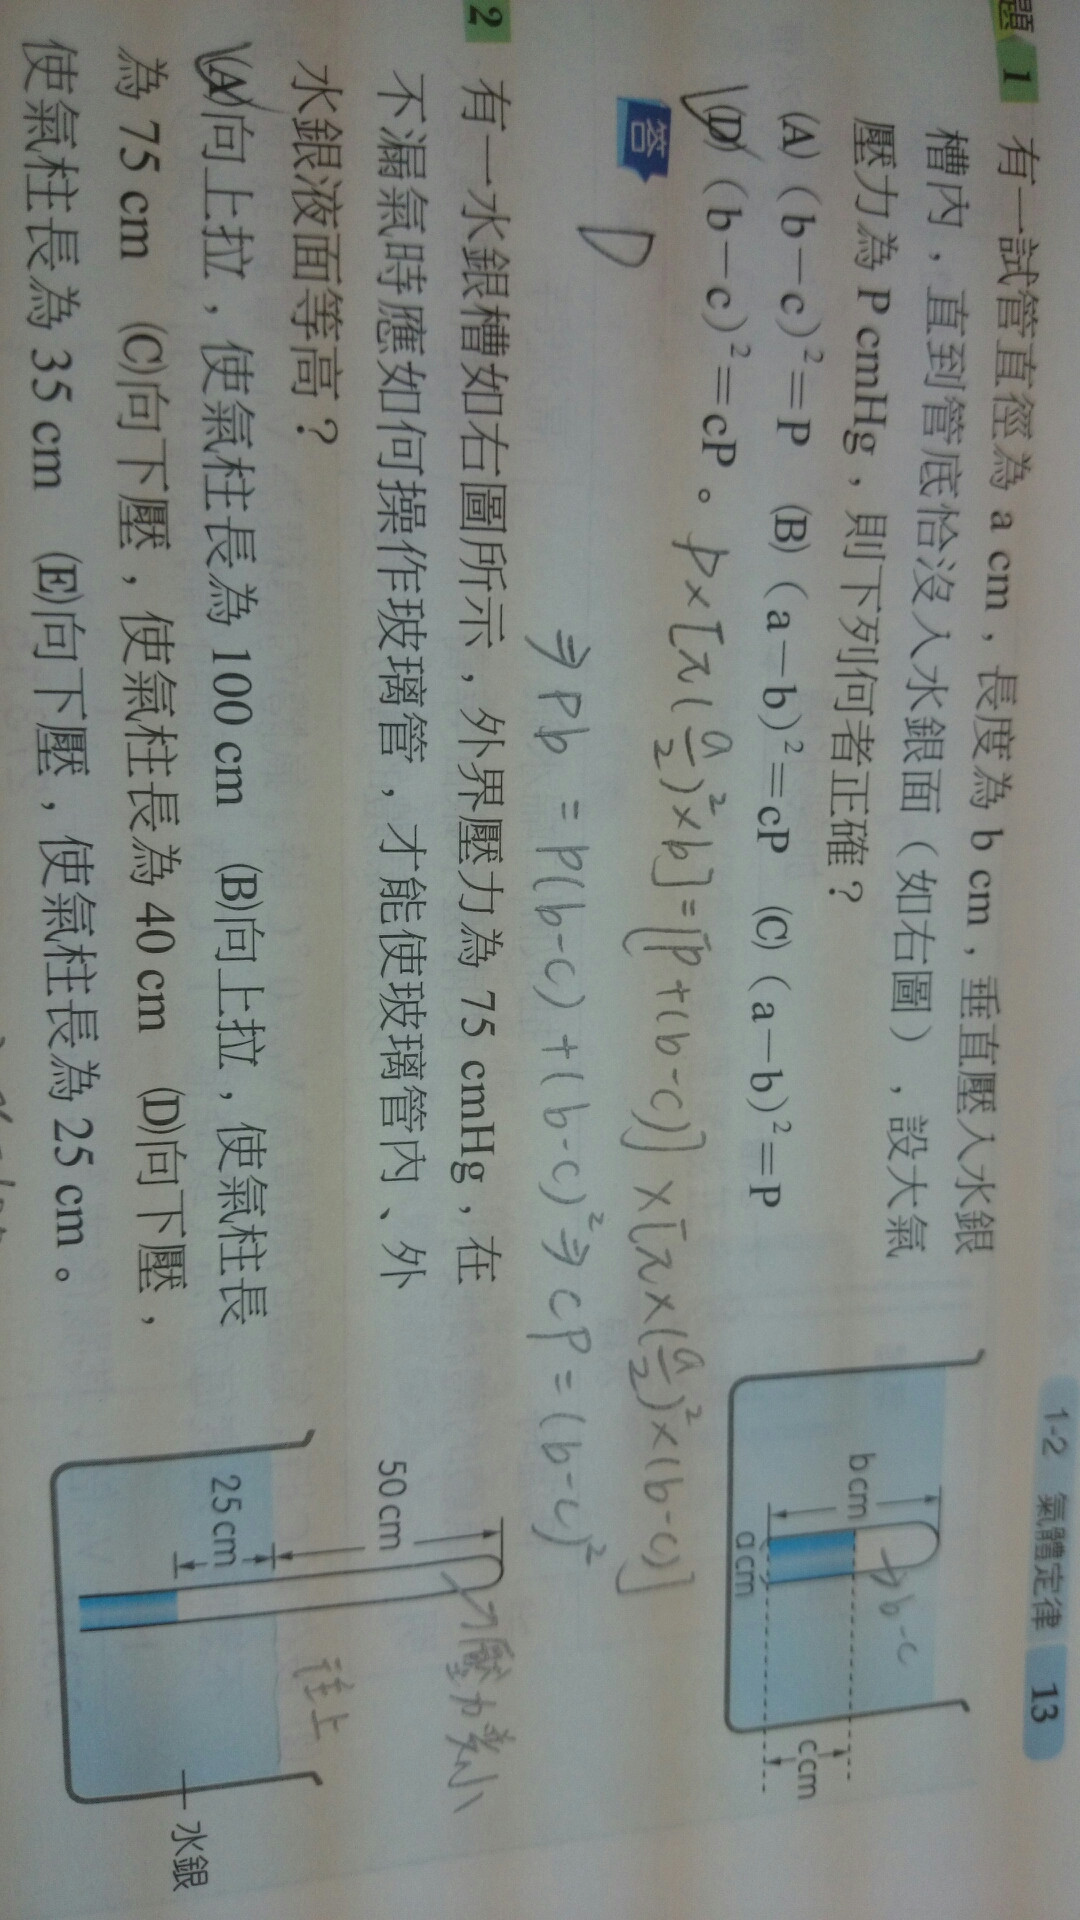 1-2 氣體定律 13
題 1 有一試管直徑為 a cm，長度為 b cm，垂直壓入水銀
槽內，直到管底恰沒入水銀面（如右圖），設大氣
壓力為 P cmHg，則下列何者正確？
(A)（b－c）²＝P (B)（a－b）²＝cP (C)（a－b）²＝P
(D)（b－c）²＝cP。
答 D
P×[π(a/2)²×b]=[P+(b-c)]×[π×(a/2)²×(b-c)]
⇒Pb = P(b-c)+(b-c)²⇒cP=(b-c)²
b cm
a cm
c cm
b-c
2 有一水銀槽如右圖所示，外界壓力為 75 cmHg，在
不漏氣時應如何操作玻璃管，才能使玻璃管內、外
水銀液面等高？
(A)向上拉，使氣柱長為 100 cm (B)向上拉，使氣柱長
為 75 cm (C)向下壓，使氣柱長為 40 cm (D)向下壓，
使氣柱長為 35 cm (E)向下壓，使氣柱長為 25 cm。
50 cm
25 cm
壓力差小
往上
水銀